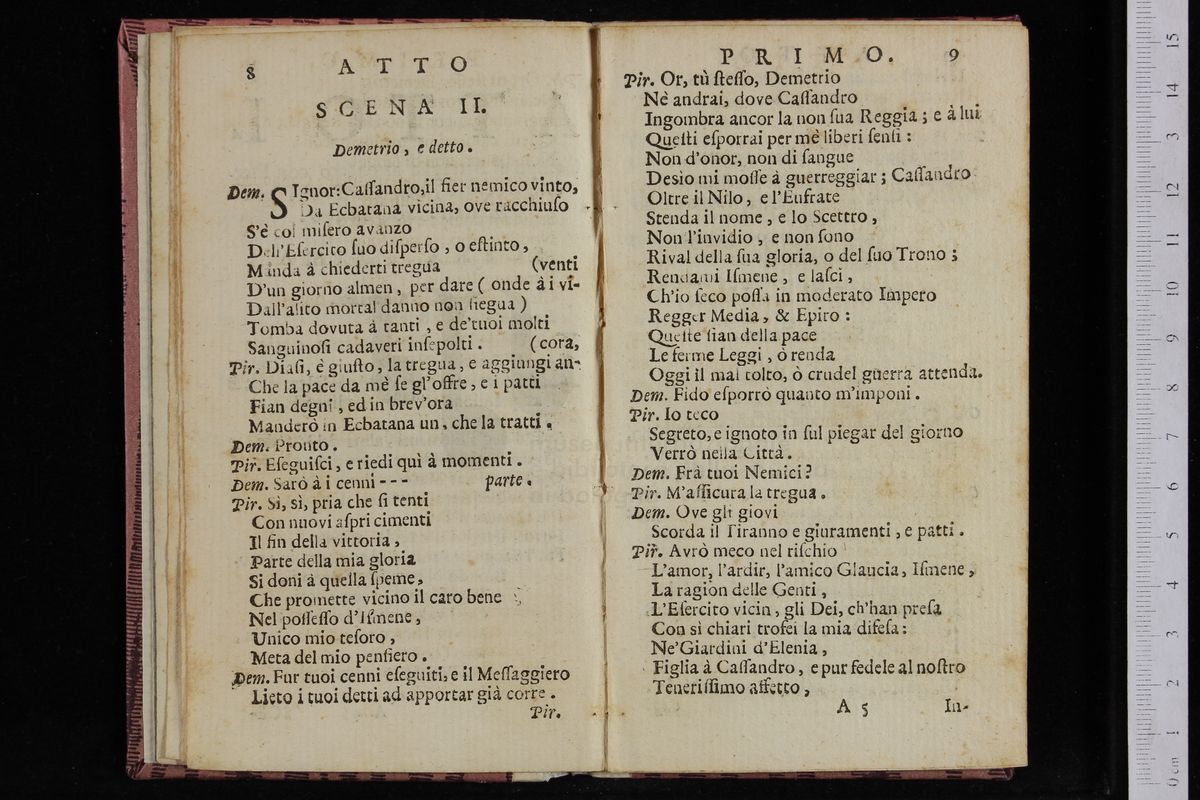 8 ATTO
SCENA II.
Demetrio, e detto.
Dem. SIgnor: Caſſandro, il fier nemico vinto,
Da Ecbatana vicina, ove racchiuſo
S'è col miſero avanzo
Dell'Eſercito ſuo diſperſo, o eſtinto,
Manda à chiederti tregua (venti
D'un giorno almen, per dare ( onde à i vi-
Dall'alito mortal danno non ſiegua )
Tomba dovuta à tanti, e de'tuoi molti
Sanguinoſi cadaveri inſepolti. (cora,
Pir. Diaſi, è giuſto, la tregua, e aggiungi an-
Che la pace da mè ſe gl'offre, e i patti
Fian degni, ed in brev'ora
Manderò in Ecbatana un, che la tratti.
Dem. Pronto.
Pir. Eſeguiſci, e riedi quì à momenti.
Dem. Sarò à i cenni --- parte.
Pir. Sì, sì, pria che ſi tenti
Con nuovi aſpri cimenti
Il fin della vittoria,
Parte della mia gloria
Si doni à quella ſpeme,
Che promette vicino il caro bene
Nel poſſeſſo d'Iſmene,
Unico mio teſoro,
Meta del mio penſiero.
Dem. Fur tuoi cenni eſeguiti, e il Meſſaggiero
Lieto i tuoi detti ad apportar già corre.
Pir.
PRIMO. 9
Pir. Or, tù ſteſſo, Demetrio
Nè andrai, dove Caſſandro
Ingombra ancor la non ſua Reggia; e à lui
Queſti eſporrai per mè liberi ſenſi:
Non d'onor, non di ſangue
Desìo mi moſſe à guerreggiar; Caſſandro
Oltre il Nilo, e l'Eufrate
Stenda il nome, e lo Scettro,
Non l'invidio, e non ſono
Rival della ſua gloria, o del ſuo Trono;
Rendami Iſmene, e laſci,
Ch'io ſeco poſſa in moderato Impero
Regger Media, & Epiro:
Queſte ſian della pace
Le ferme Leggi, ò renda
Oggi il mal tolto, ò crudel guerra attenda.
Dem. Fido eſporrò quanto m'imponi.
Pir. Io teco
Segreto, e ignoto in ſul piegar del giorno
Verrò nella Città.
Dem. Frà tuoi Nemici?
Pir. M'aſſicura la tregua.
Dem. Ove gli giovi
Scorda il Tiranno e giuramenti, e patti.
Pir. Avrò meco nel riſchio
L'amor, l'ardir, l'amico Glaucia, Iſmene,
La ragion delle Genti,
L'Eſercito vicin, gli Dei, ch'han preſa
Con sì chiari trofei la mia difeſa:
Ne'Giardini d'Elenia,
Figlia à Caſſandro, e pur fedele al noſtro
Teneriſſimo affetto,
A 5 In-
0 cm 1 2 3 4 5 6 7 8 9 10 11 12 3 14 15